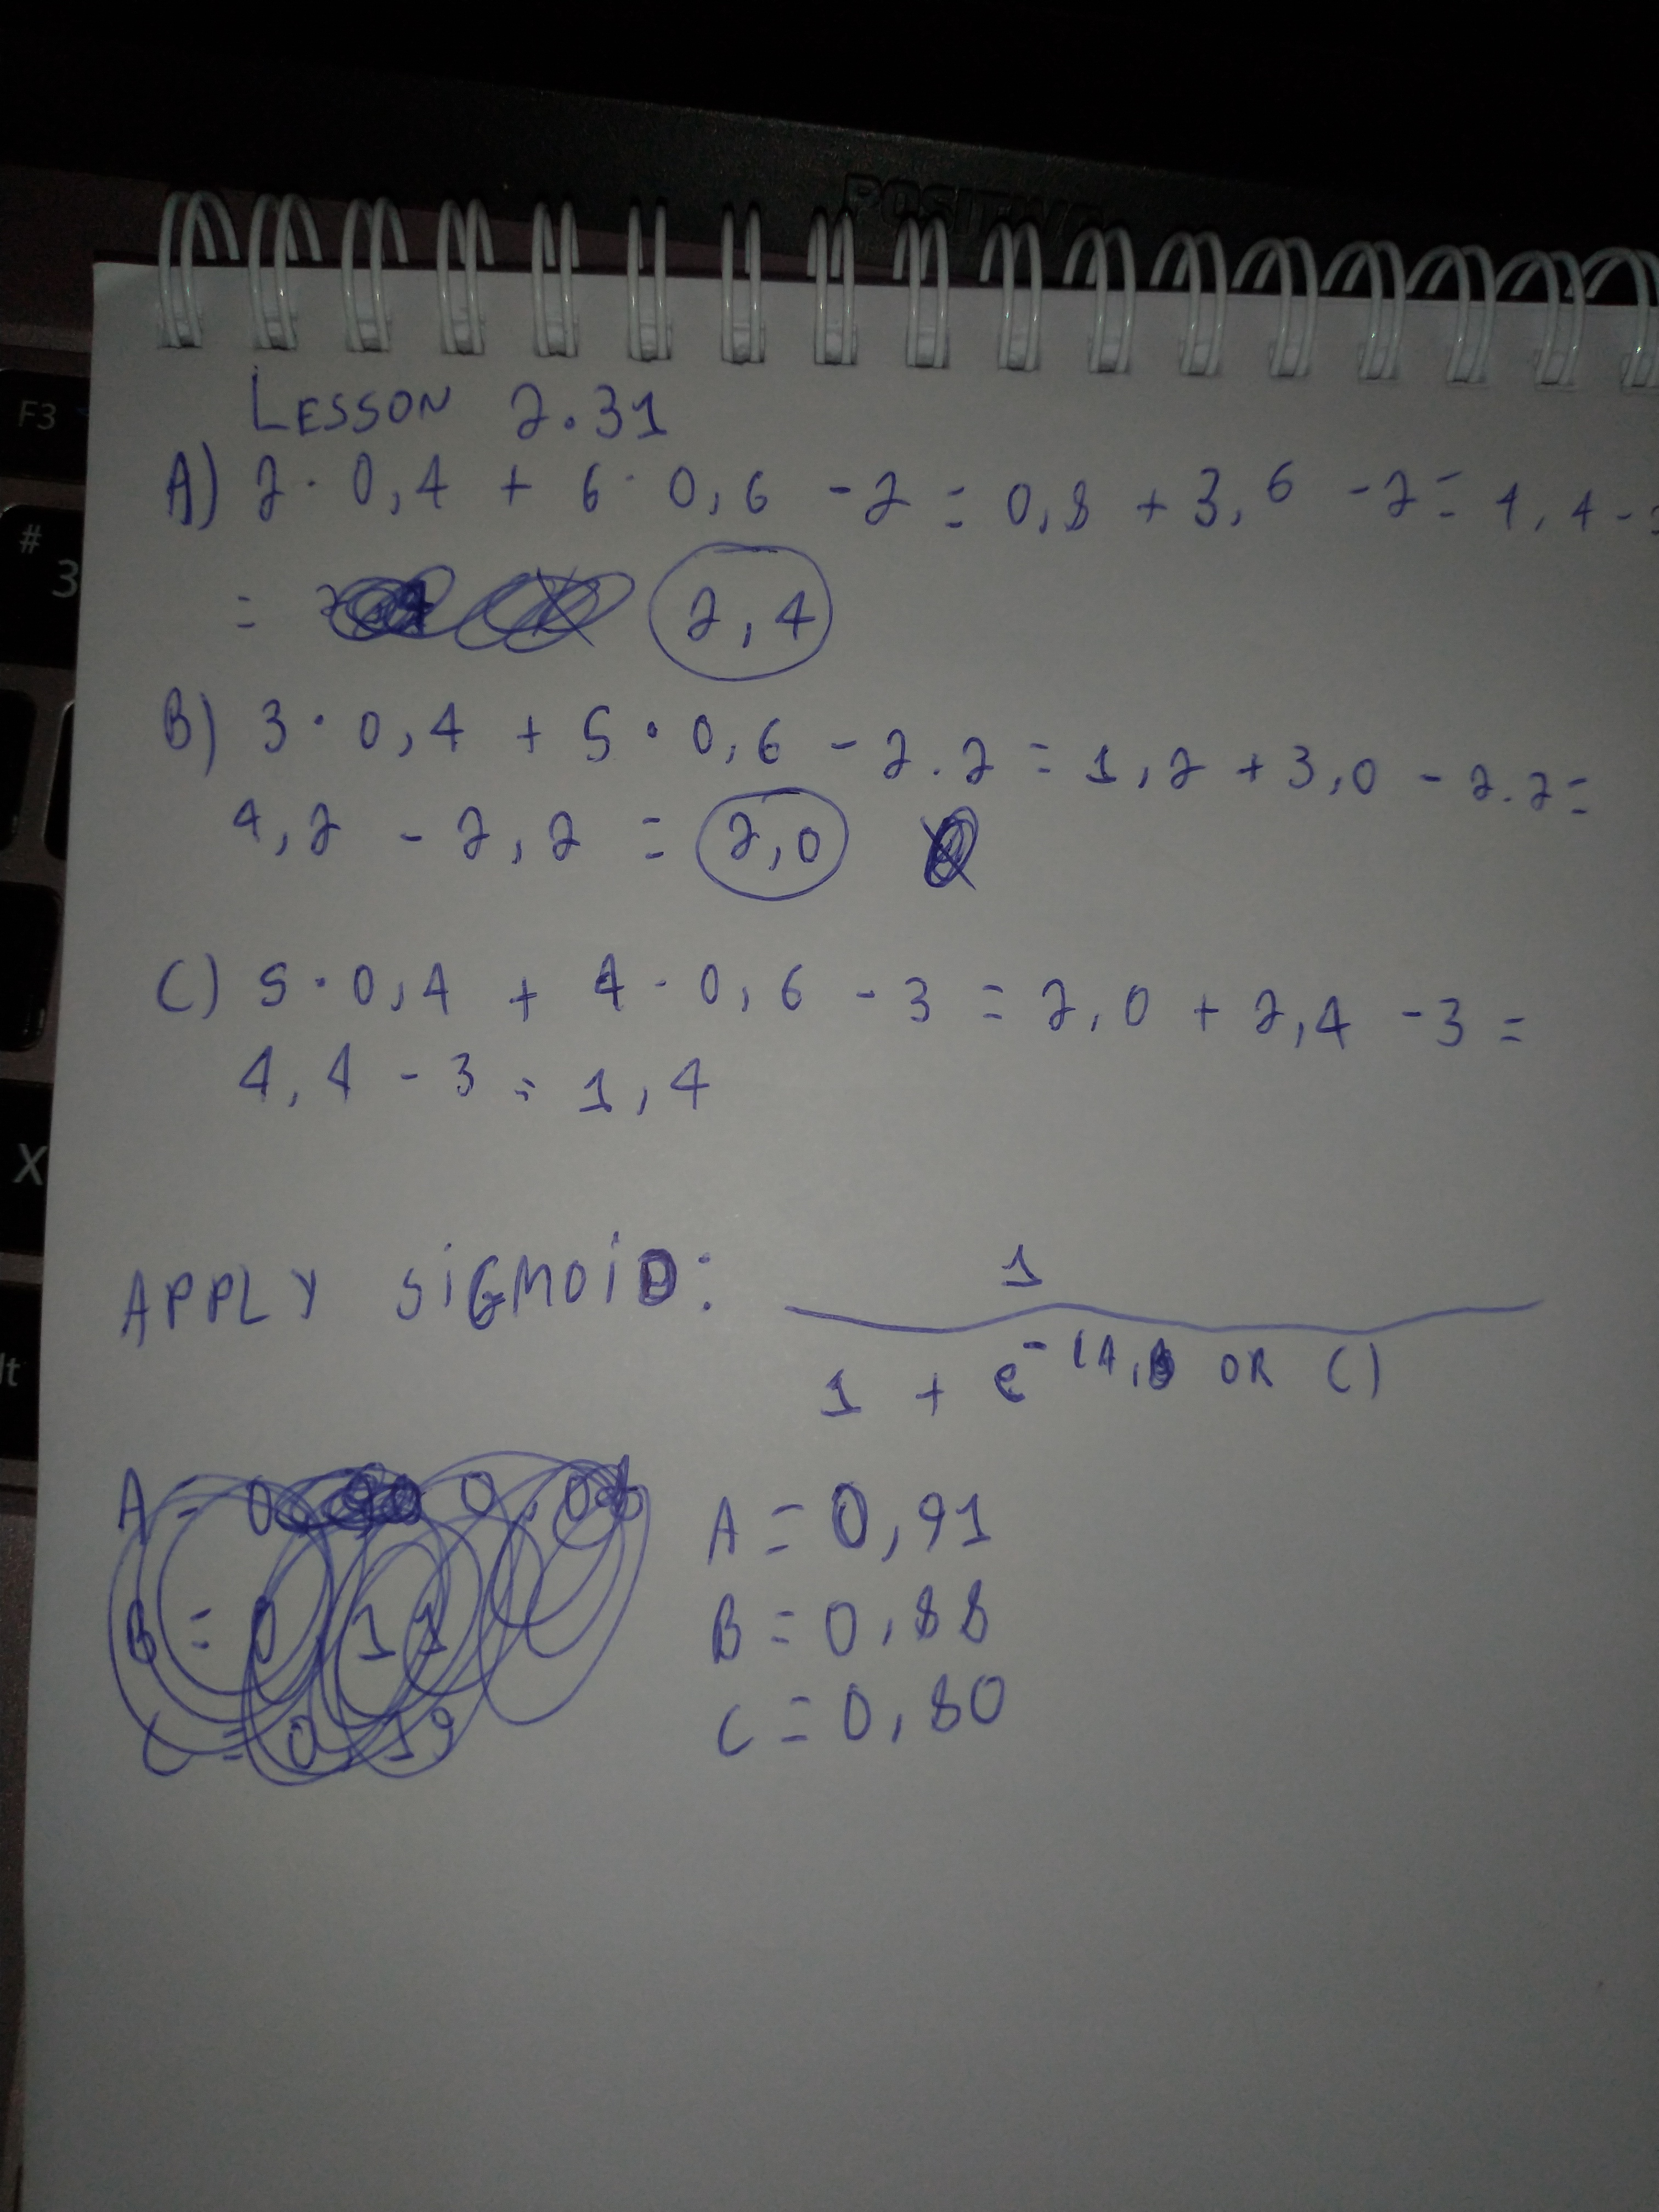 POSITIVO
F3
#
3
X
lt
LESSON 2.31
A) 2 · 0,4 + 6 · 0,6 - 2 = 0,8 + 3,6 - 2 = 4,4 -
= 2,4
B) 3 · 0,4 + 5 · 0,6 - 2.2 = 1,2 + 3,0 - 2.2 =
4,2 - 2,2 = 2,0
C) 5 · 0,4 + 4 · 0,6 - 3 = 2,0 + 2,4 - 3 =
4,4 - 3 = 1,4
APPLY SIGMOID:
1
1 + e^-(A,B OR C)
A = 0,91
B = 0,88
C = 0,80
B = 0,11
C = 0,19